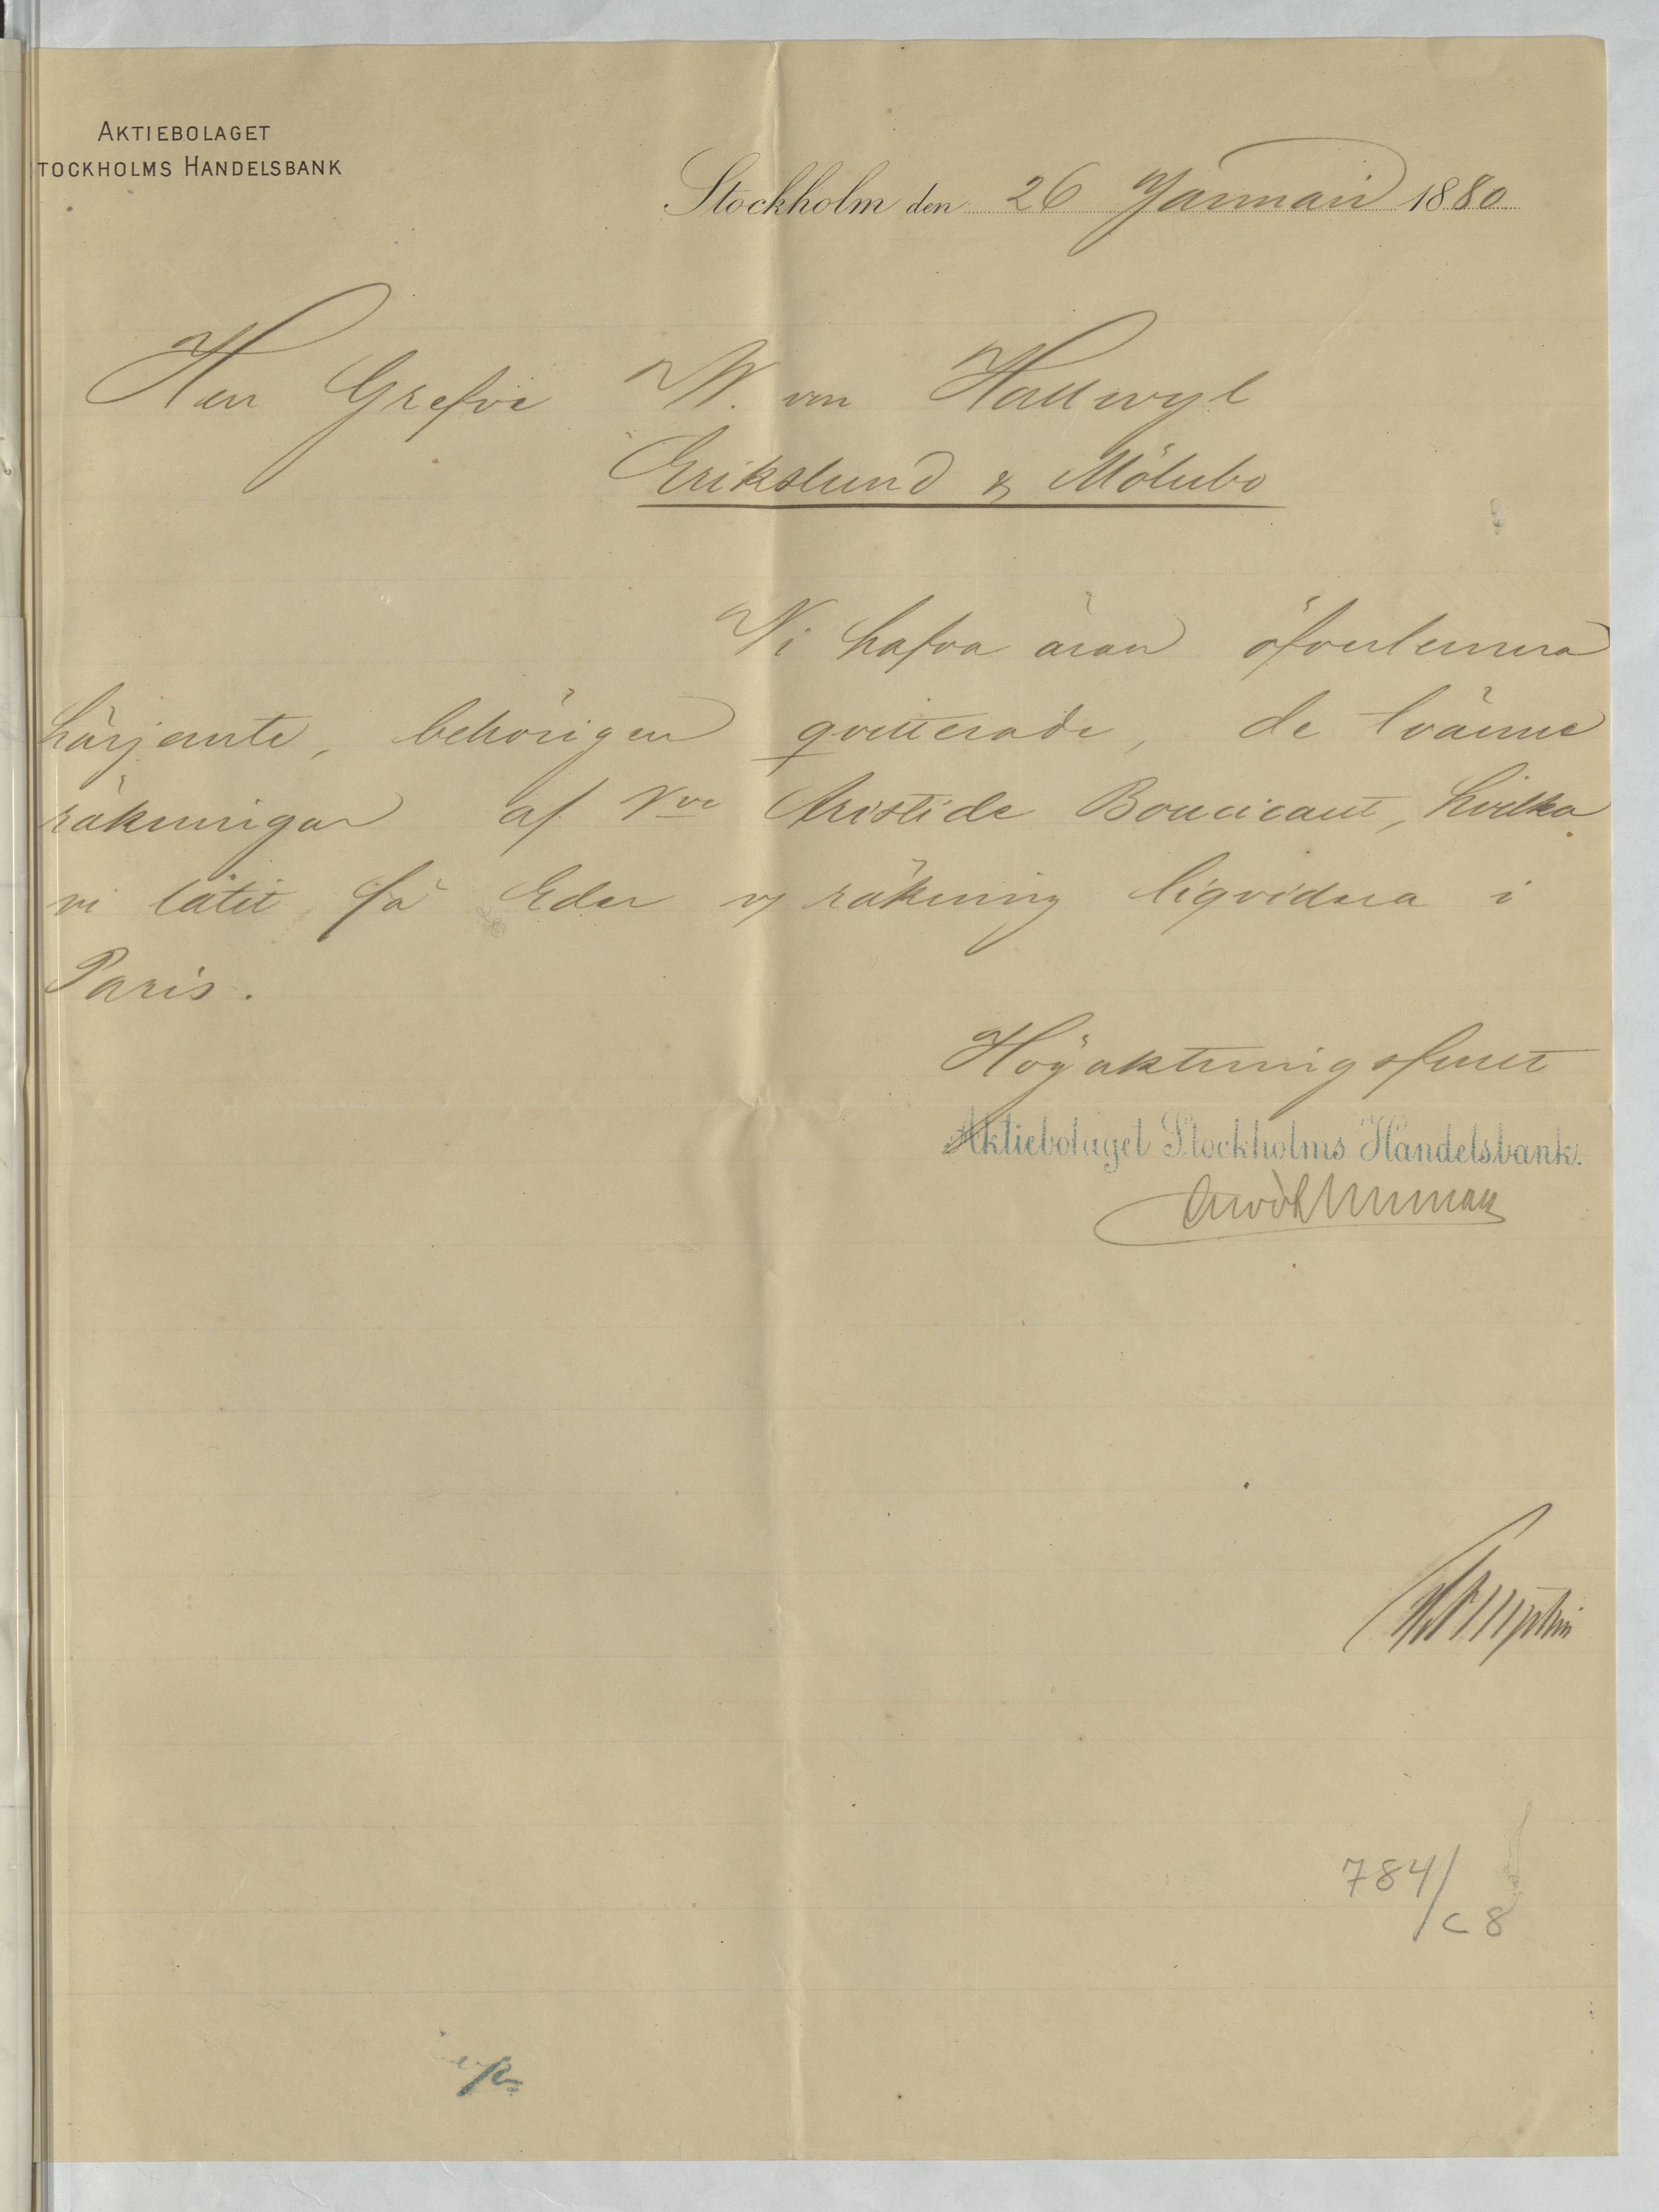 AKTIEBOLAGET
TOCKHOLMS HANDELSBANK
Stockholm den 26 Januari 1880
Herr Grefve W. von Hallwyl
Erikslund & Mölnbo
Vi hafva äran öfverlemna
härjemte, behörigen qvitterade, de tvänne
räkningar af Vve Aristide Boucicaut, hvilka
vi låtit på Eder räkning liqvidera i
Paris.
Högaktningsfullt
Aktiebolaget Stockholms Handelsbank.
784/
c 8